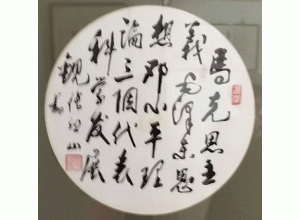 馬克思主
義毛澤東思
想邓小平理
論三個代表
科学发展
觀